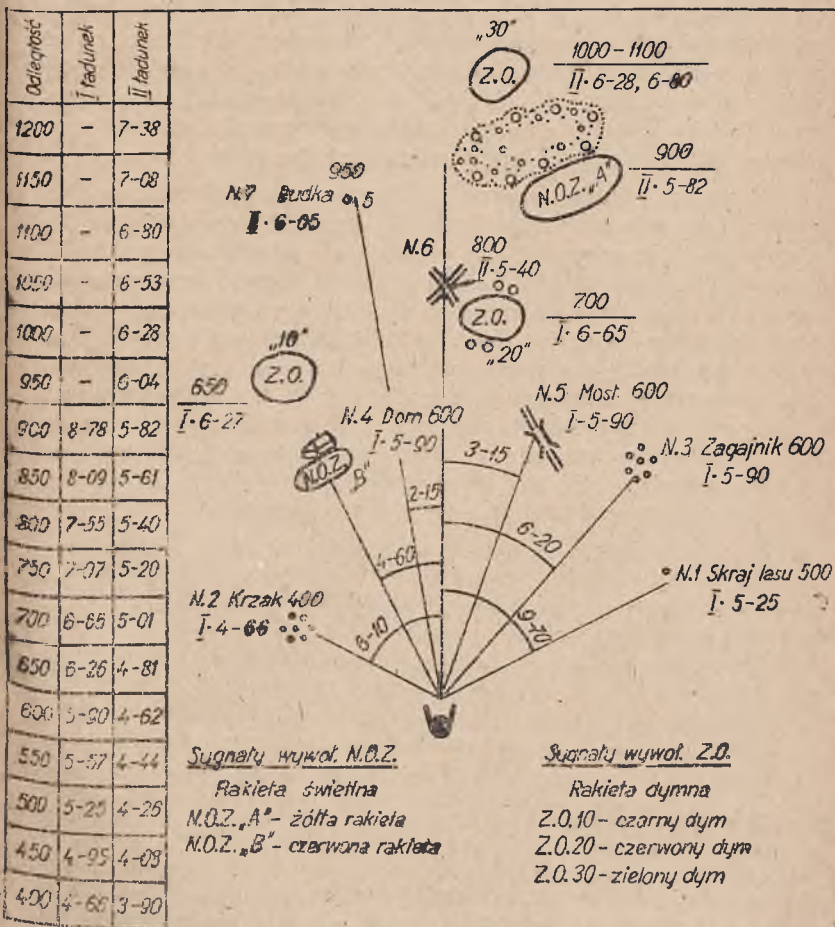 Odległość I ładunek II ładunek
1200 - 7-38
1150 - 7-08
1100 - 6-80
1050 - 6-53
1000 - 6-28
950 - 6-04
900 8-78 5-82
850 8-09 5-61
800 7-55 5-40
750 7-07 5-20
700 6-65 5-01
650 6-26 4-81
600 5-90 4-62
550 5-57 4-44
500 5-25 4-26
450 4-95 4-08
400 4-66 3-90
„30"
Z.O.
1000-1100
II· 6-28, 6-80
N.O.Z. „A"
900
II· 5-82
950
N.7 Budka 5
II· 6-05
N.6
800
II·5-40
Z.O.
„20"
700
I· 6-65
„10"
Z.O.
650
I·6-27
N.4 Dom 600
I·5-90
N.O.Z.
„B"
N.5 Most 600
I-5-90
N.3 Zagajnik 600
I·5-90
N.1 Skraj lasu 500
I· 5-25
N.2 Krzak 400
I·4-66
3-15
2-15
6-20
4-60
9-70
6-10
Sygnały wywoł. N.O.Z.
Rakieta świetlna
N.O.Z. „A" - żółta rakieta
N.O.Z. „B" - czerwona rakieta
Sygnały wywoł. Z.O.
Rakieta dymna
Z.O.10 - czarny dym
Z.O.20 - czerwony dym
Z.O.30 - zielony dym